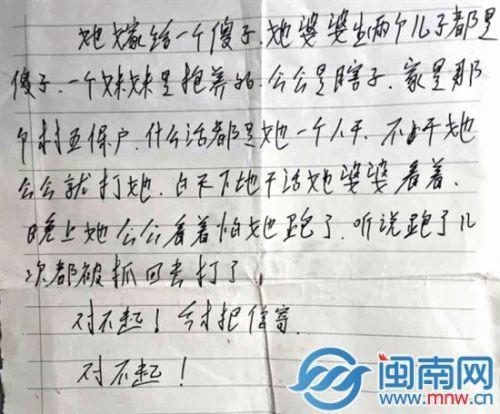 她嫁给一个傻子.她婆婆生两个儿子都是
傻子.一个妹妹是抱养的.公公是瞎子.家是那
个村五保户.什么活都是她一个人干.不干她
公公就打她.白天下地干活她婆婆看着.
晚上她公公看着怕她跑了.听说跑了几
次都被抓回去打了
对不起!今才把信寄.
对不起!
闽南网
www.mnw.cn